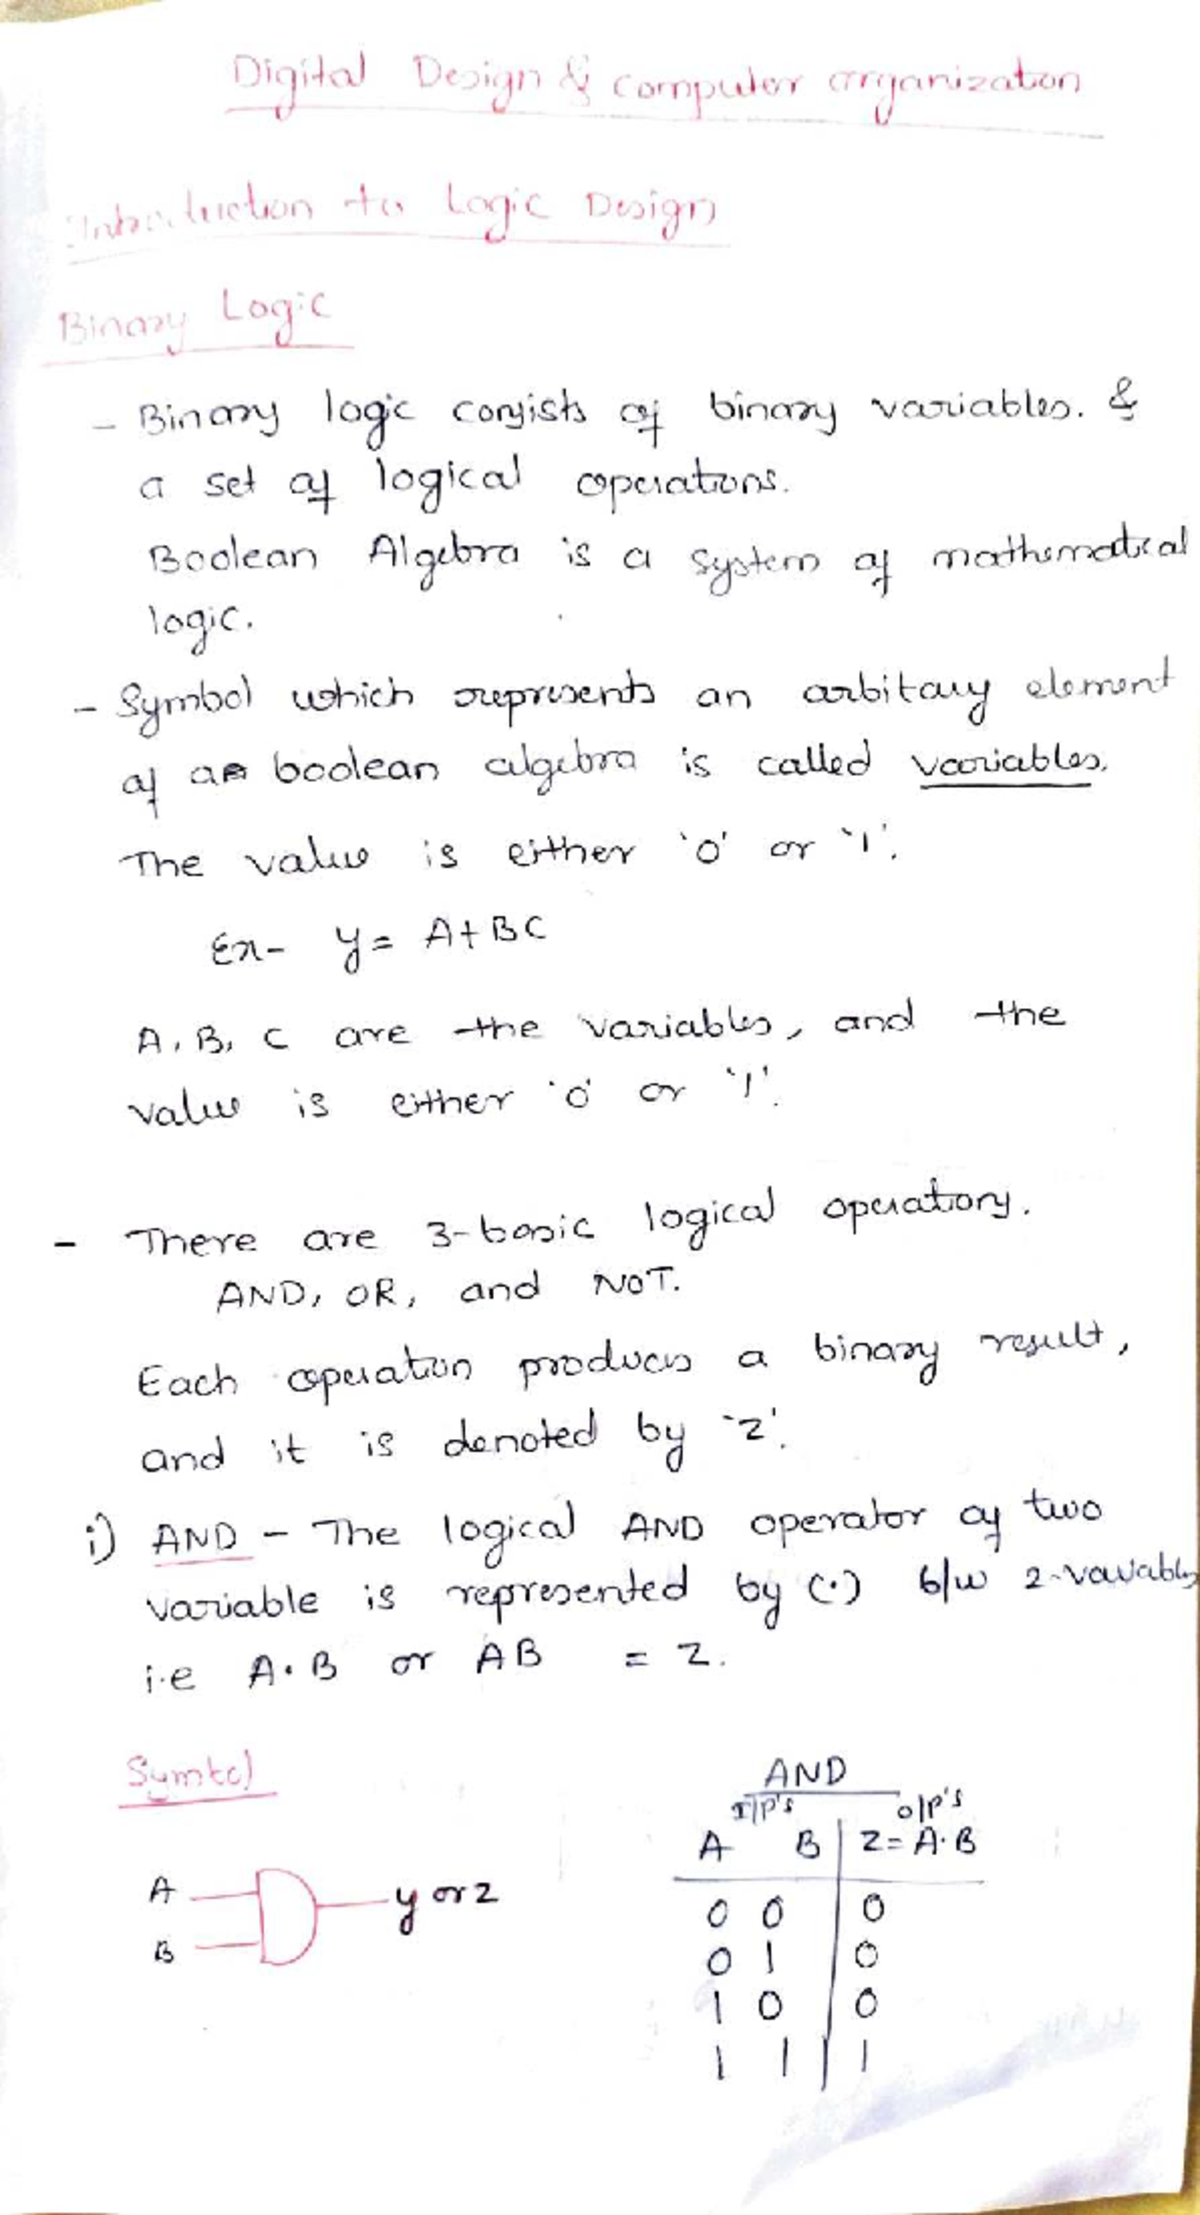 Digital Design & computer organization
Introduction to Logic Design
Binary Logic
- Binary logic consists of binary variables. &
a set of logical operations.
Boolean Algebra is a system of mathematical
logic.
- Symbol which represents an arbitary element
of a boolean algebra is called variables.
The value is either '0' or '1'.
Ex- y = A+BC
A, B, C are the variables, and the
value is either '0' or '1'.
- There are 3-basic logical operations.
AND, OR, and NOT.
Each operation produces a binary result,
and it is denoted by 'z'.
i) AND - The logical AND operator of two
variable is represented by (·) b/w 2-variables
i.e A·B or AB = Z.
Symbol
AND
I/P's O/P's
A B Z= A·B
A
y or z
B
0 0 0
0 1 0
1 0 0
1 1 1